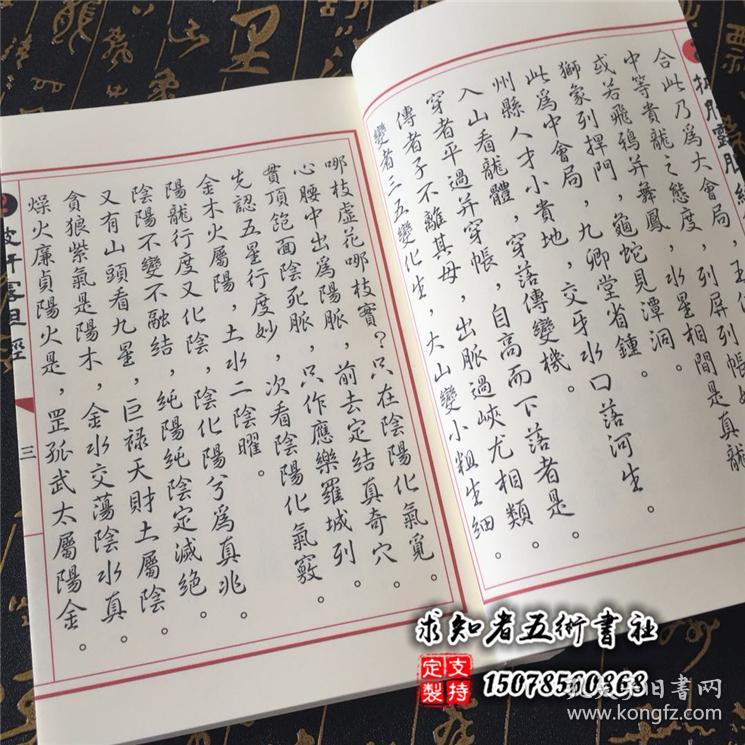 合此乃爲大會局，
中等貴龍之態度，列屏列帳
或若飛鴉并舞鳳，水星相間是真龍
獅象列捍門，龜蛇見潭洞。
此爲中會局，九卿堂省鍾。
州縣人才小貴地，交牙水口落河生。
入山看龍體，穿落傳變機。
穿者平過并穿帳，自高而下落者是。
傳者子不離其母，出脈過峽尤相類。
變者二五變化生，大山變小粗生細。
哪枝虛花哪枝實？只在陰陽化氣覓。
心腰中出爲陽脈，前去定結真奇穴。
貫頂飽面陰死脈，只作應樂羅城列。
先認五星行度妙，次看陰陽化氣竅。
金木火屬陽，土水二陰曜。
陽龍行度又化陰，陰化陽兮爲真兆。
陰陽不變不融結，純陽純陰定滅絕。
又有山頭看九星，巨祿天財土屬陰。
貪狼紫氣是陽木，金水交蕩陰水真。
燥火廉貞陽火是，罡孤武太屬陽金。
三
求知者五術書社
支持定製
15078510868
旧書网
www.kongfz.com